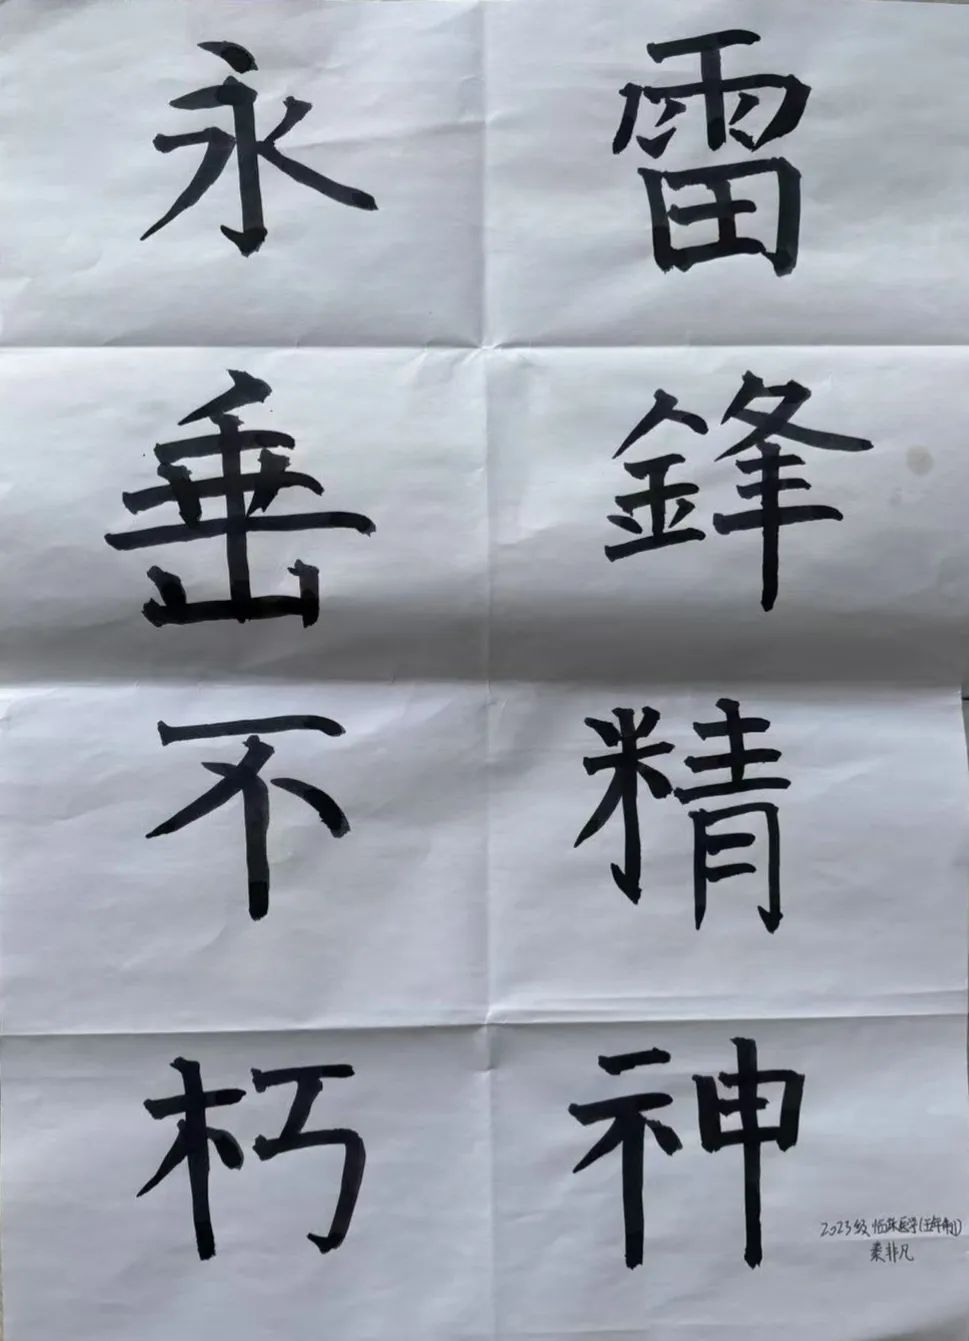 雷鋒精神
永垂不朽
2023级临床医学(五年制)
秦非凡